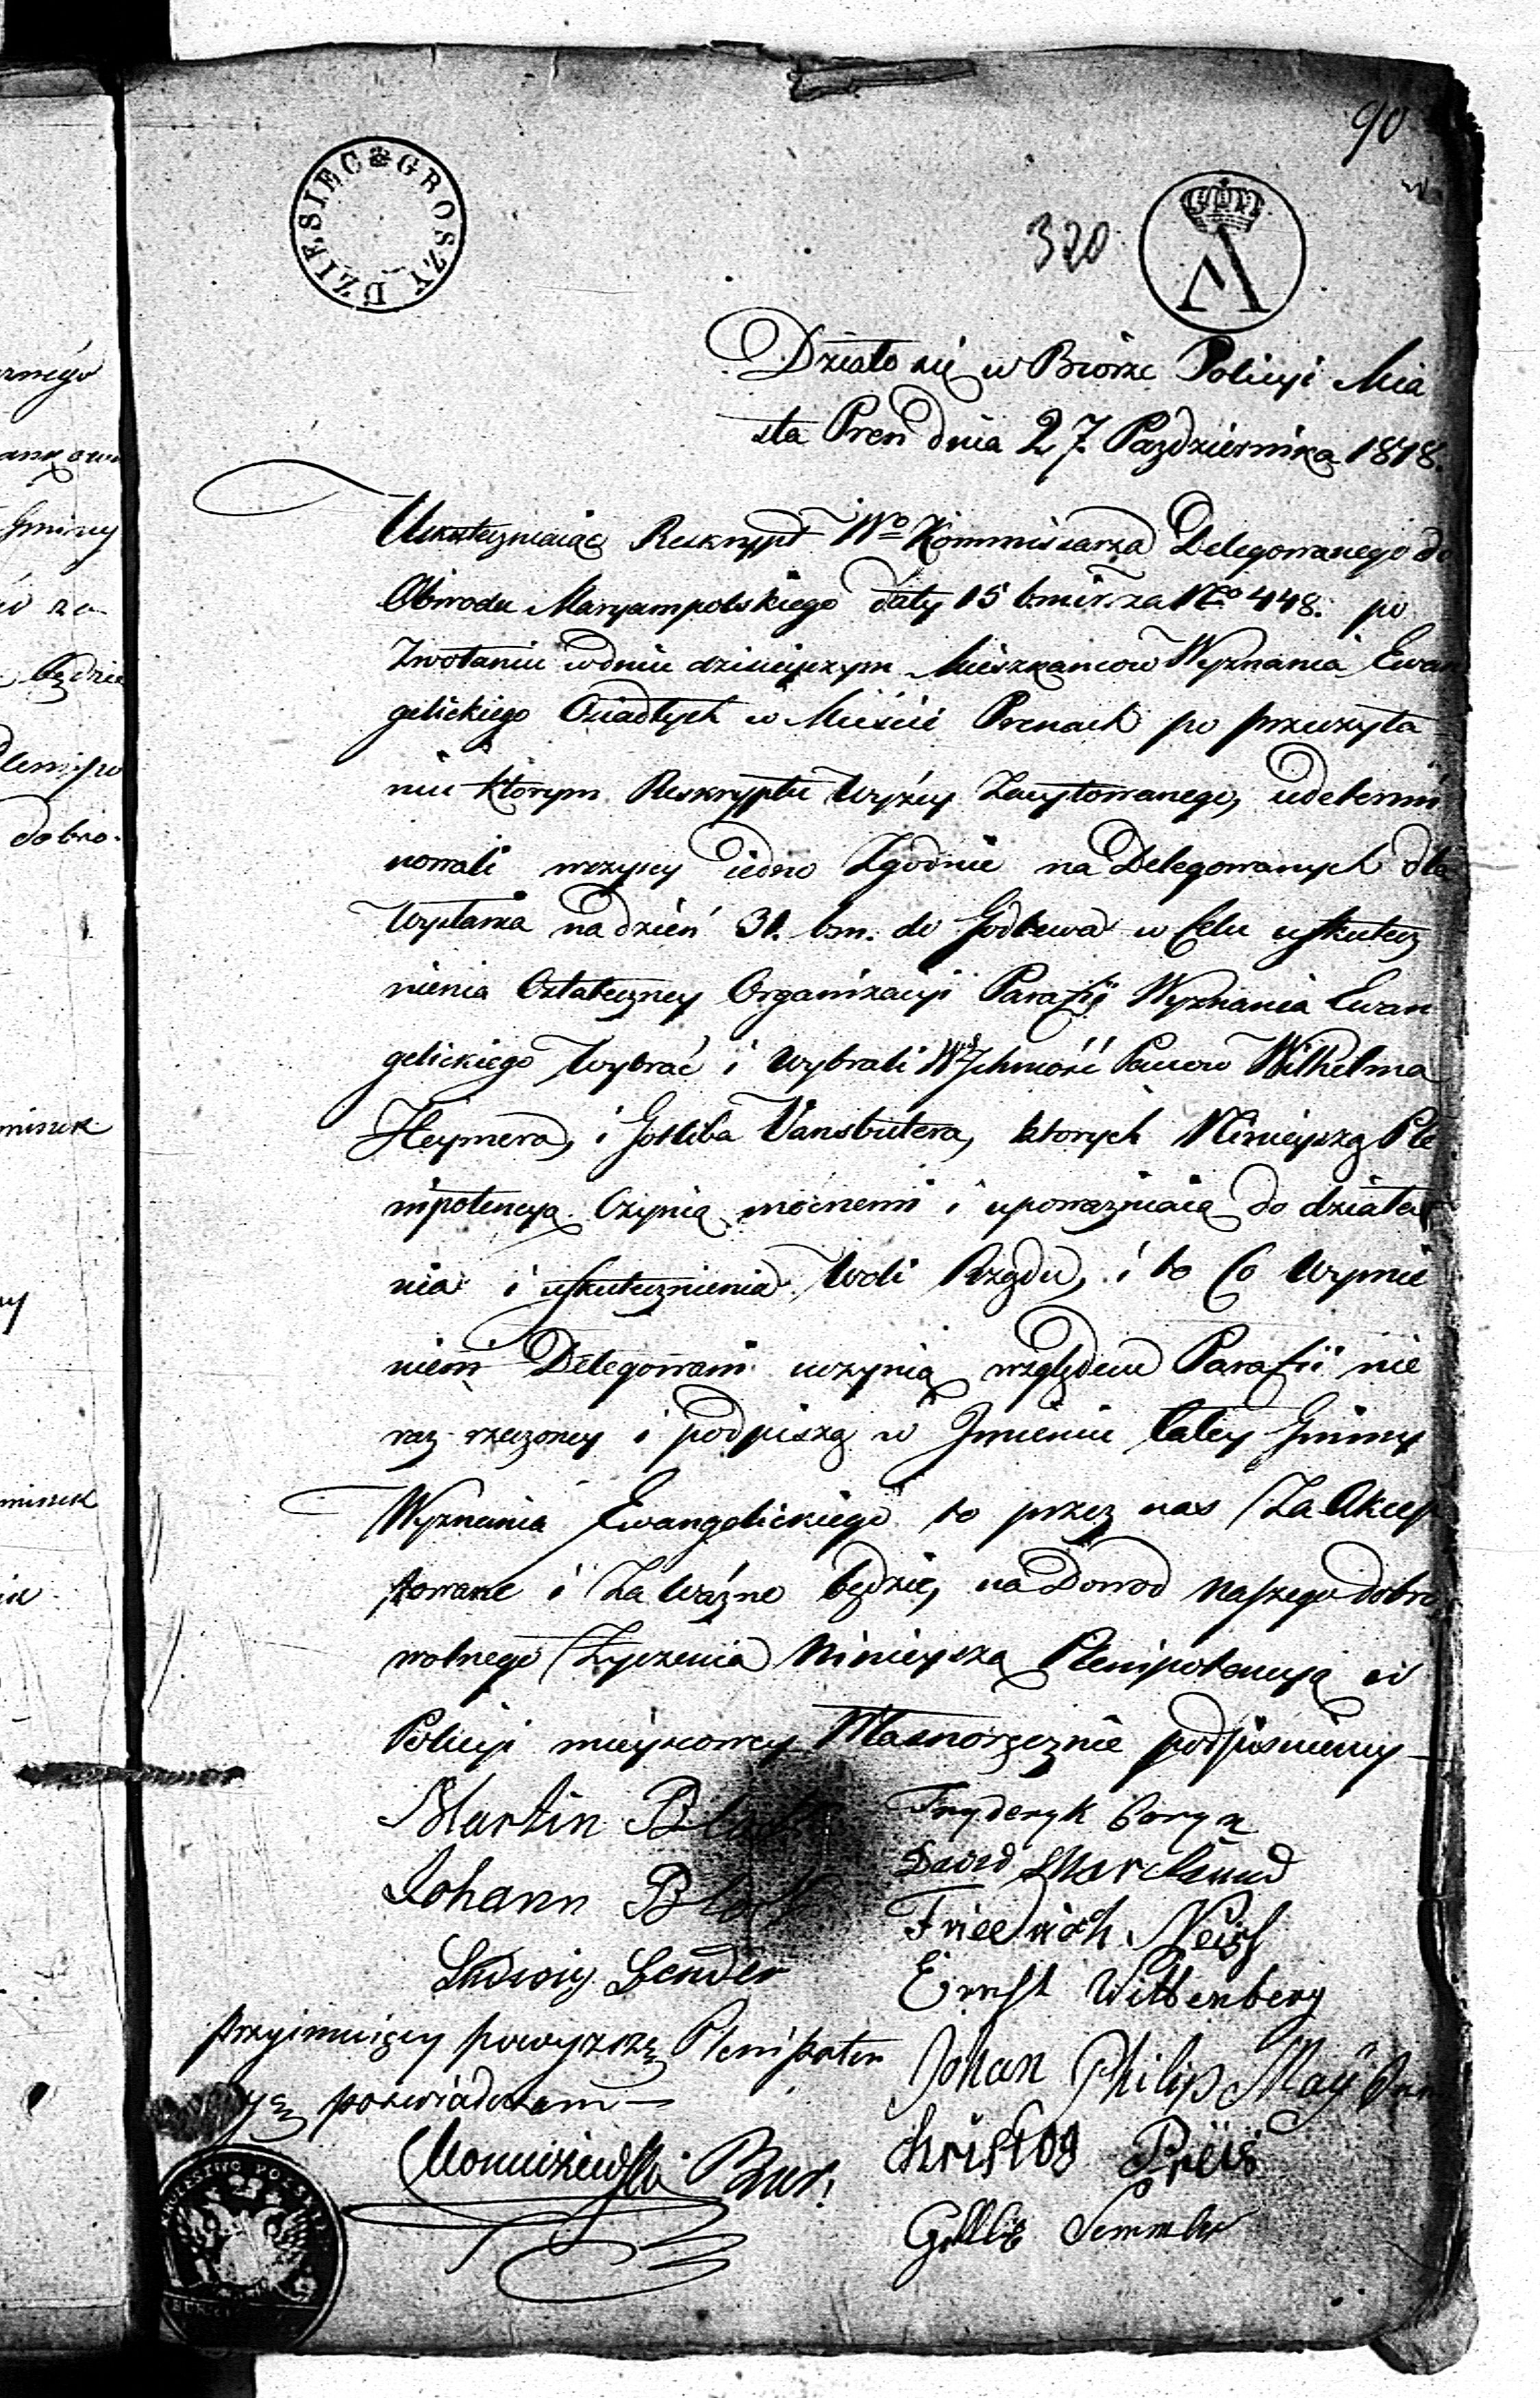 90
DZIESIEC GROSZY
320
Działo się w Biórze Policyi Mia
sta Pren dnia 27. Października 1818.
Uskuteczniaiąc Reskrypt Wo Kommissarza Delegowanego do
Obwodu Maryampolskiego daty 15 bmir. za No 448. po
Zwołaniu w dniu dzisieyszym Mieszkancow Wyznania Ewan
gelickiego Osiadłych w Mieście Prenach po przeczyta
niu ktorym Reskryptu Wyżey Zacytowanego, udetermi
nowali wszyscy iedno Zgodnie na Delegowanych dla
Wysłania na dzień 31. bm. do Godlewa w Celu uskutecz
nienia Ostateczney Organizacyi Parafii Wyznania Ewan
gelickiego Wybrać i Wybrali Jchmość Panow Wilhelma
Heymera, i Gotliba Vanstutera, ktorych Ninieyszą Ple
nipotencyą Czynią mocnemi i upoważniaią do działa
nia i uskutecznienia Woli Rządu, i to Co Wymie
nieni Delegowani uczynią względem Parafii nie
raz rzeczoney i podpiszą w Jmieniu Całey Gminy
Wyznania Ewangelickiego to przez nas Za Akcep
towane i Za Ważne będzie, na Dowod naszego dobro
wolnego Życzenia Ninieyszą Plenipotencyą w
Policyi mieyscowey Własnoręcznie podpisuiemy
Martin Block
Johann Block
Ludwig Bender
Fryderyk
David
Friedrich Neiss
Ernst Wittenberg
Johan Philip May
Christof Preis
Gottlib Semmler
Przyimuiący powyższą Plenipoten
cyę poswiadczam
Bur: